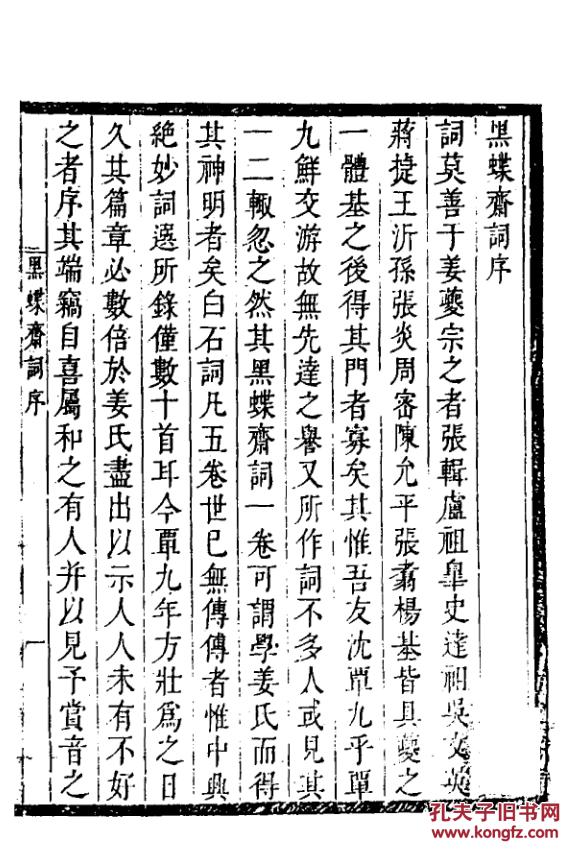 黑蝶齋詞序
詞莫善于姜夔宗之者張輯盧祖皐史達祖吳文英
蔣捷王沂孫張炎周密陳允平張翥楊基皆具夔之
一體基之後得其門者寡矣其惟吾友沈覃九乎覃
九鮮交游故無先達之譽又所作詞不多人或見其
一二輙忽之然其黑蝶齋詞一卷可謂學姜氏而得
其神明者矣白石詞凡五卷世已無傳傳者惟中興
絕妙詞選所錄僅數十首耳今覃九年方壯爲之日
久其篇章必數倍於姜氏盡出以示人人未有不好
之者序其端竊自喜屬和之有人并以見予賞音之
黑蝶齋詞序
一
孔夫子旧书网
www.kongfz.com